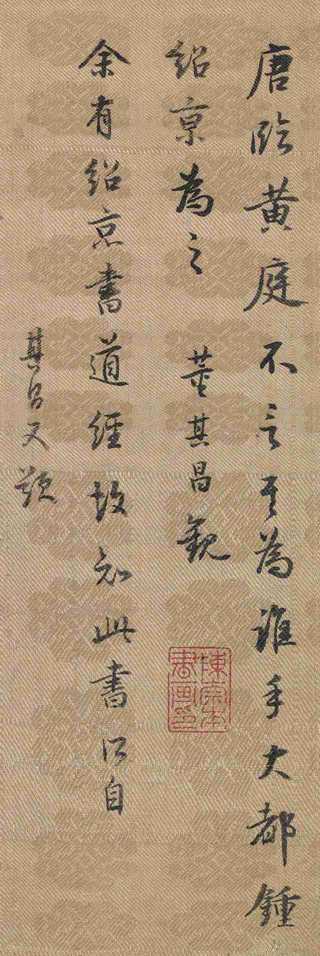 唐臨黃庭不言其為誰手大都鍾
紹京為之
董其昌觀
余有紹京書道經故知此書所自
其昌又題